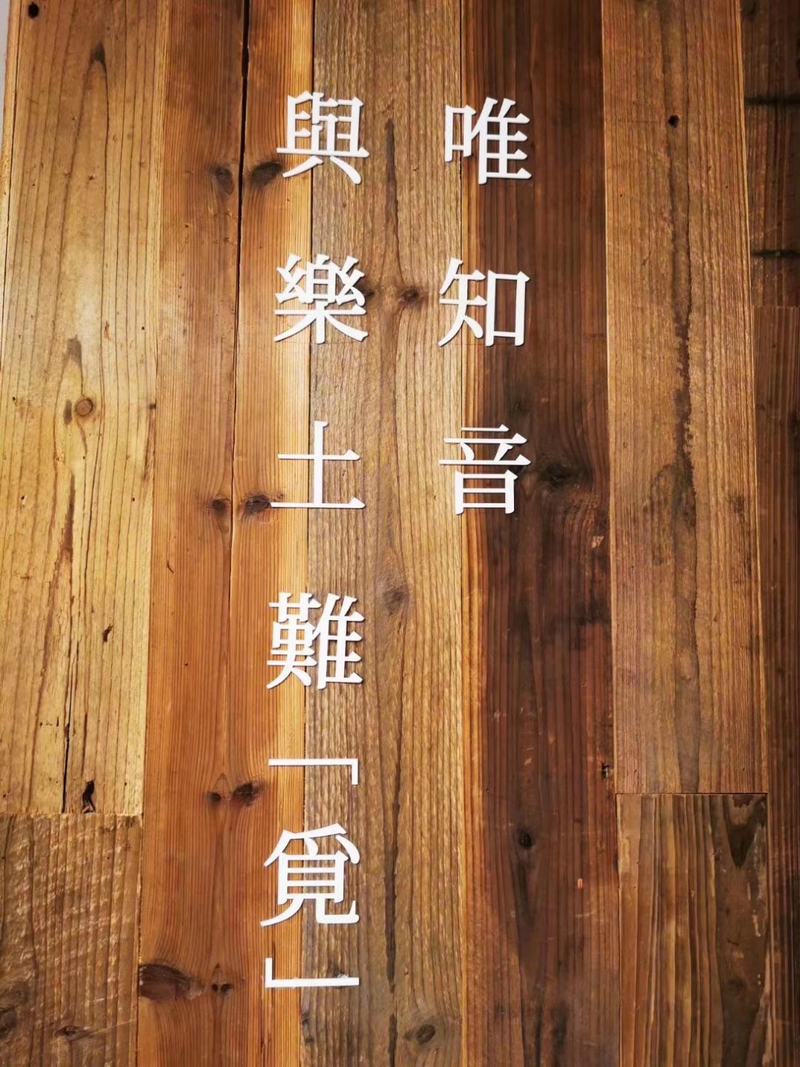 唯知音
與樂土難「覓」